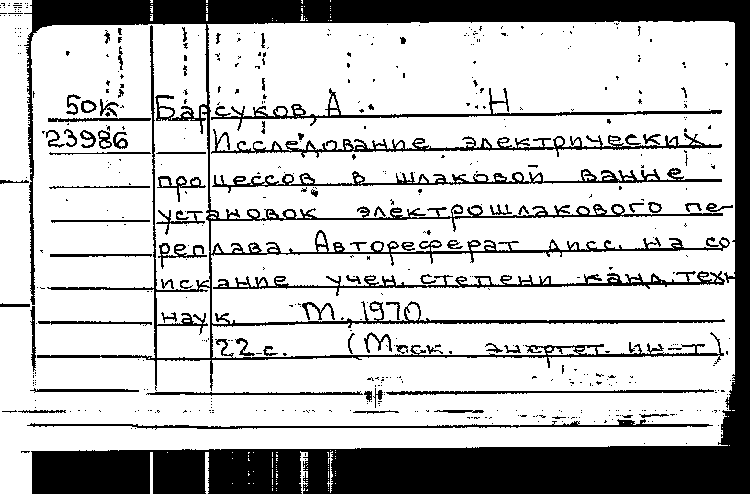 50К Барсуков, А Н
23986 Исследование электрических
процессов в шлаковой ванне
установок электрошлакового пе-
реплава. Автореферат дисс. на со-
искание учен. степени канд. техн
наук. М., 1970.
22 с. (Моск. энергет. ин-т).